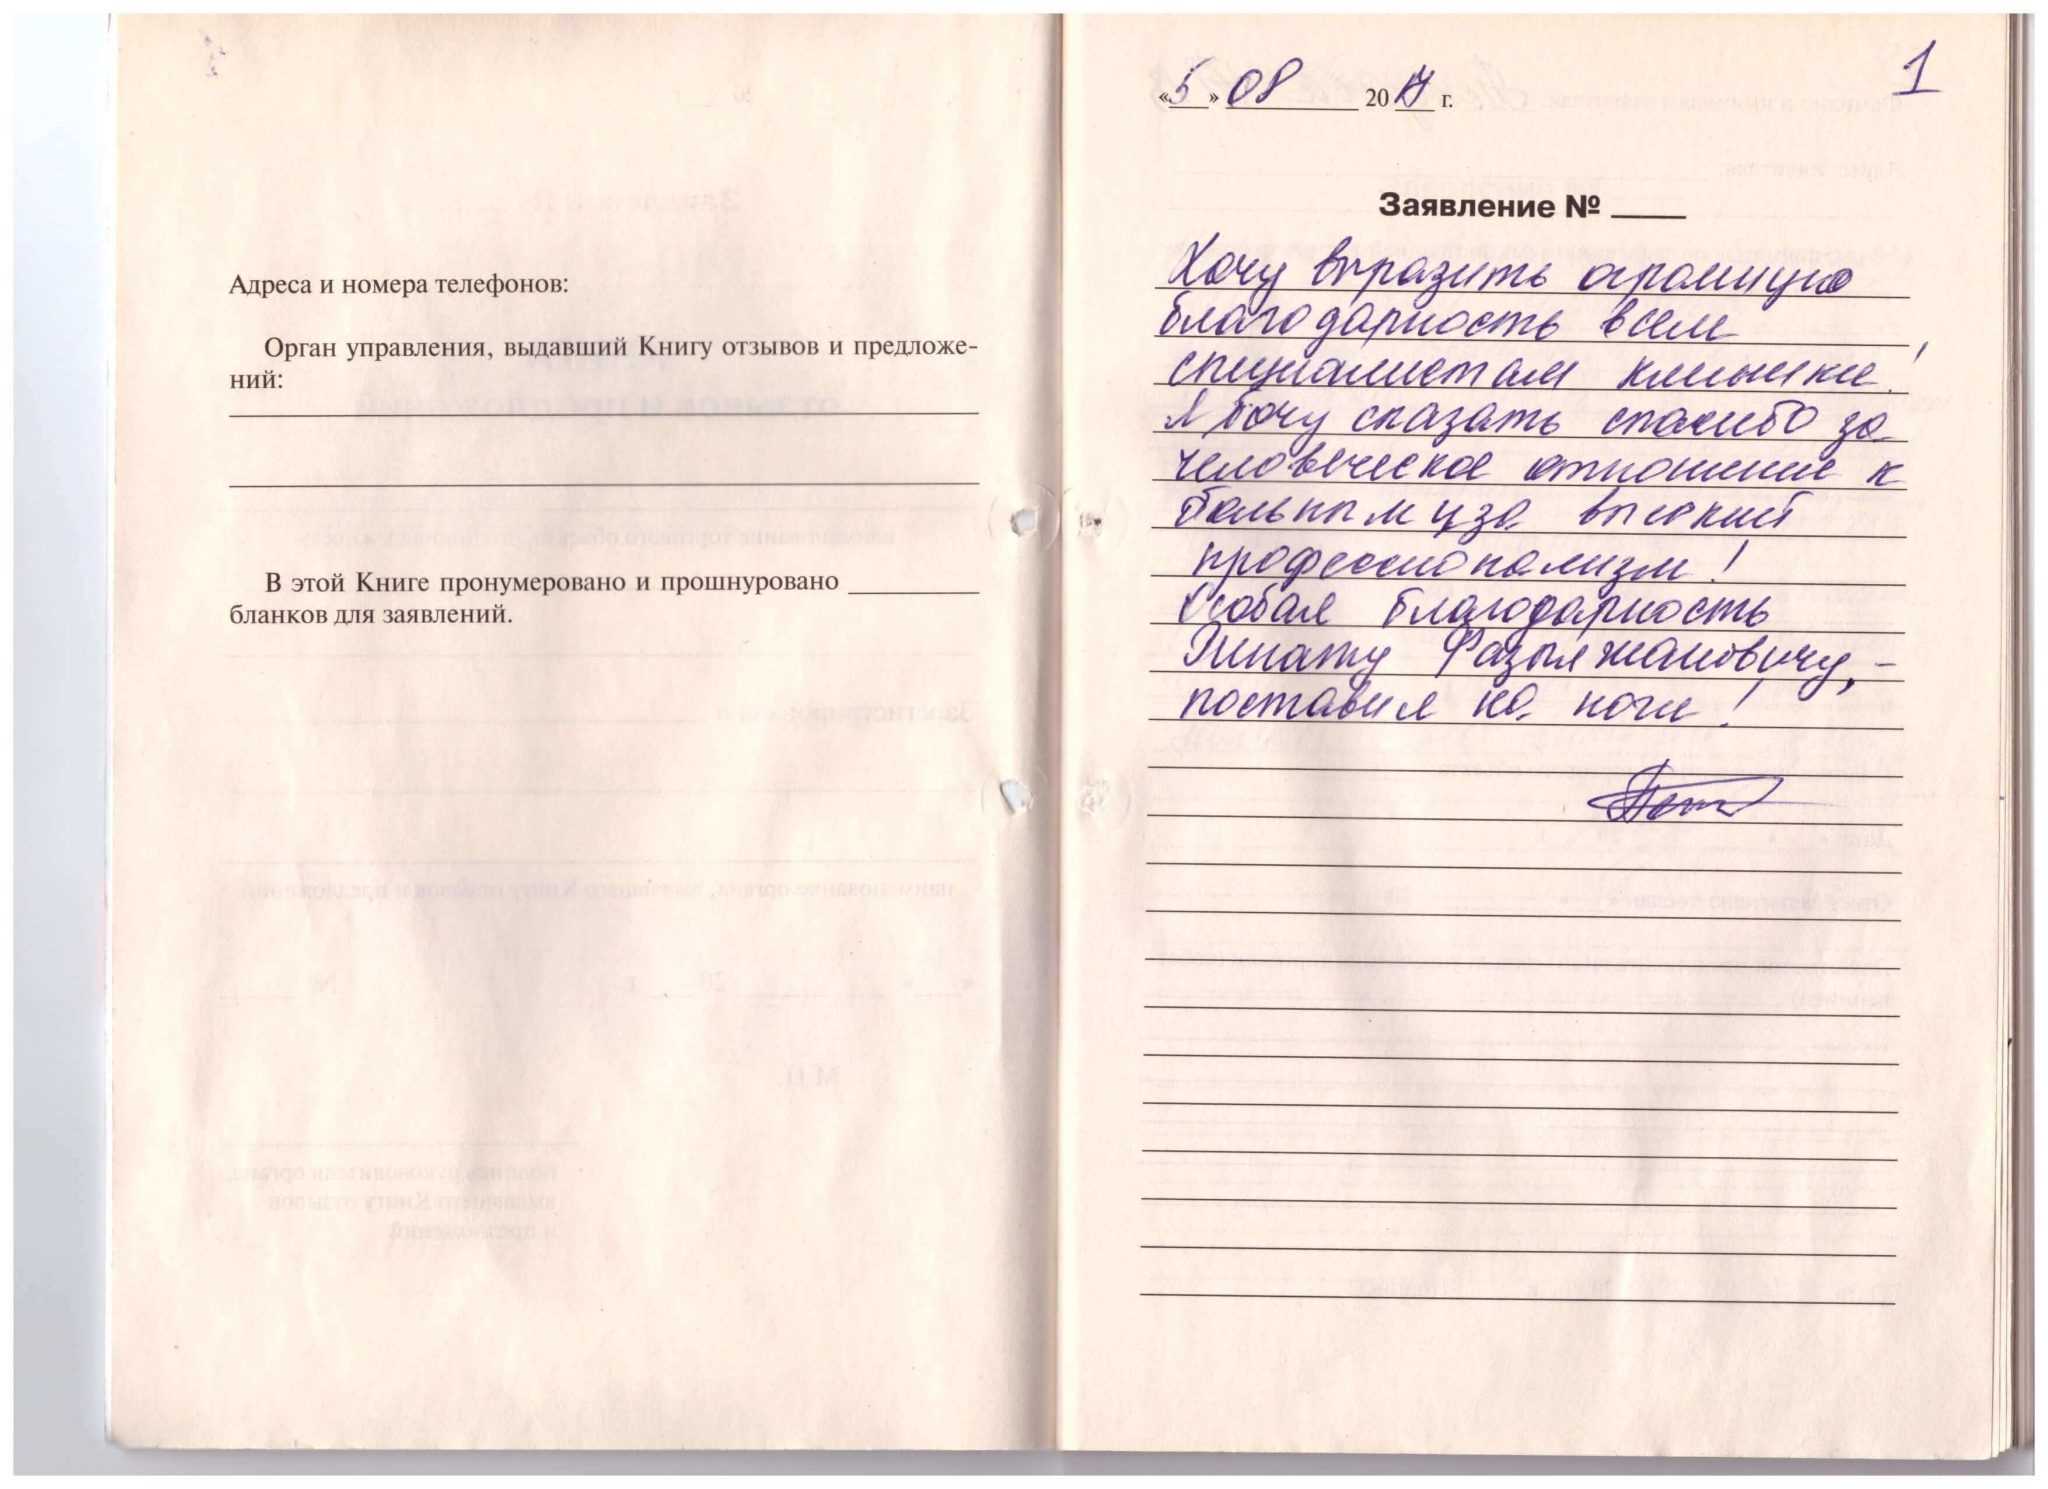 Адреса и номера телефонов:
Орган управления, выдавший Книгу отзывов и предложе-
ний:
В этой Книге пронумеровано и прошнуровано
бланков для заявлений.
1
«5» 08 2017 г.
Заявление №
Хочу выразить огромную
благодарность всем
специалистам клиники!
Я хочу сказать спасибо за
человеческое отношение к
больным и за высокий
профессионализм!
Особая благодарность
Фазылжановичу, -
поставил на ноги!